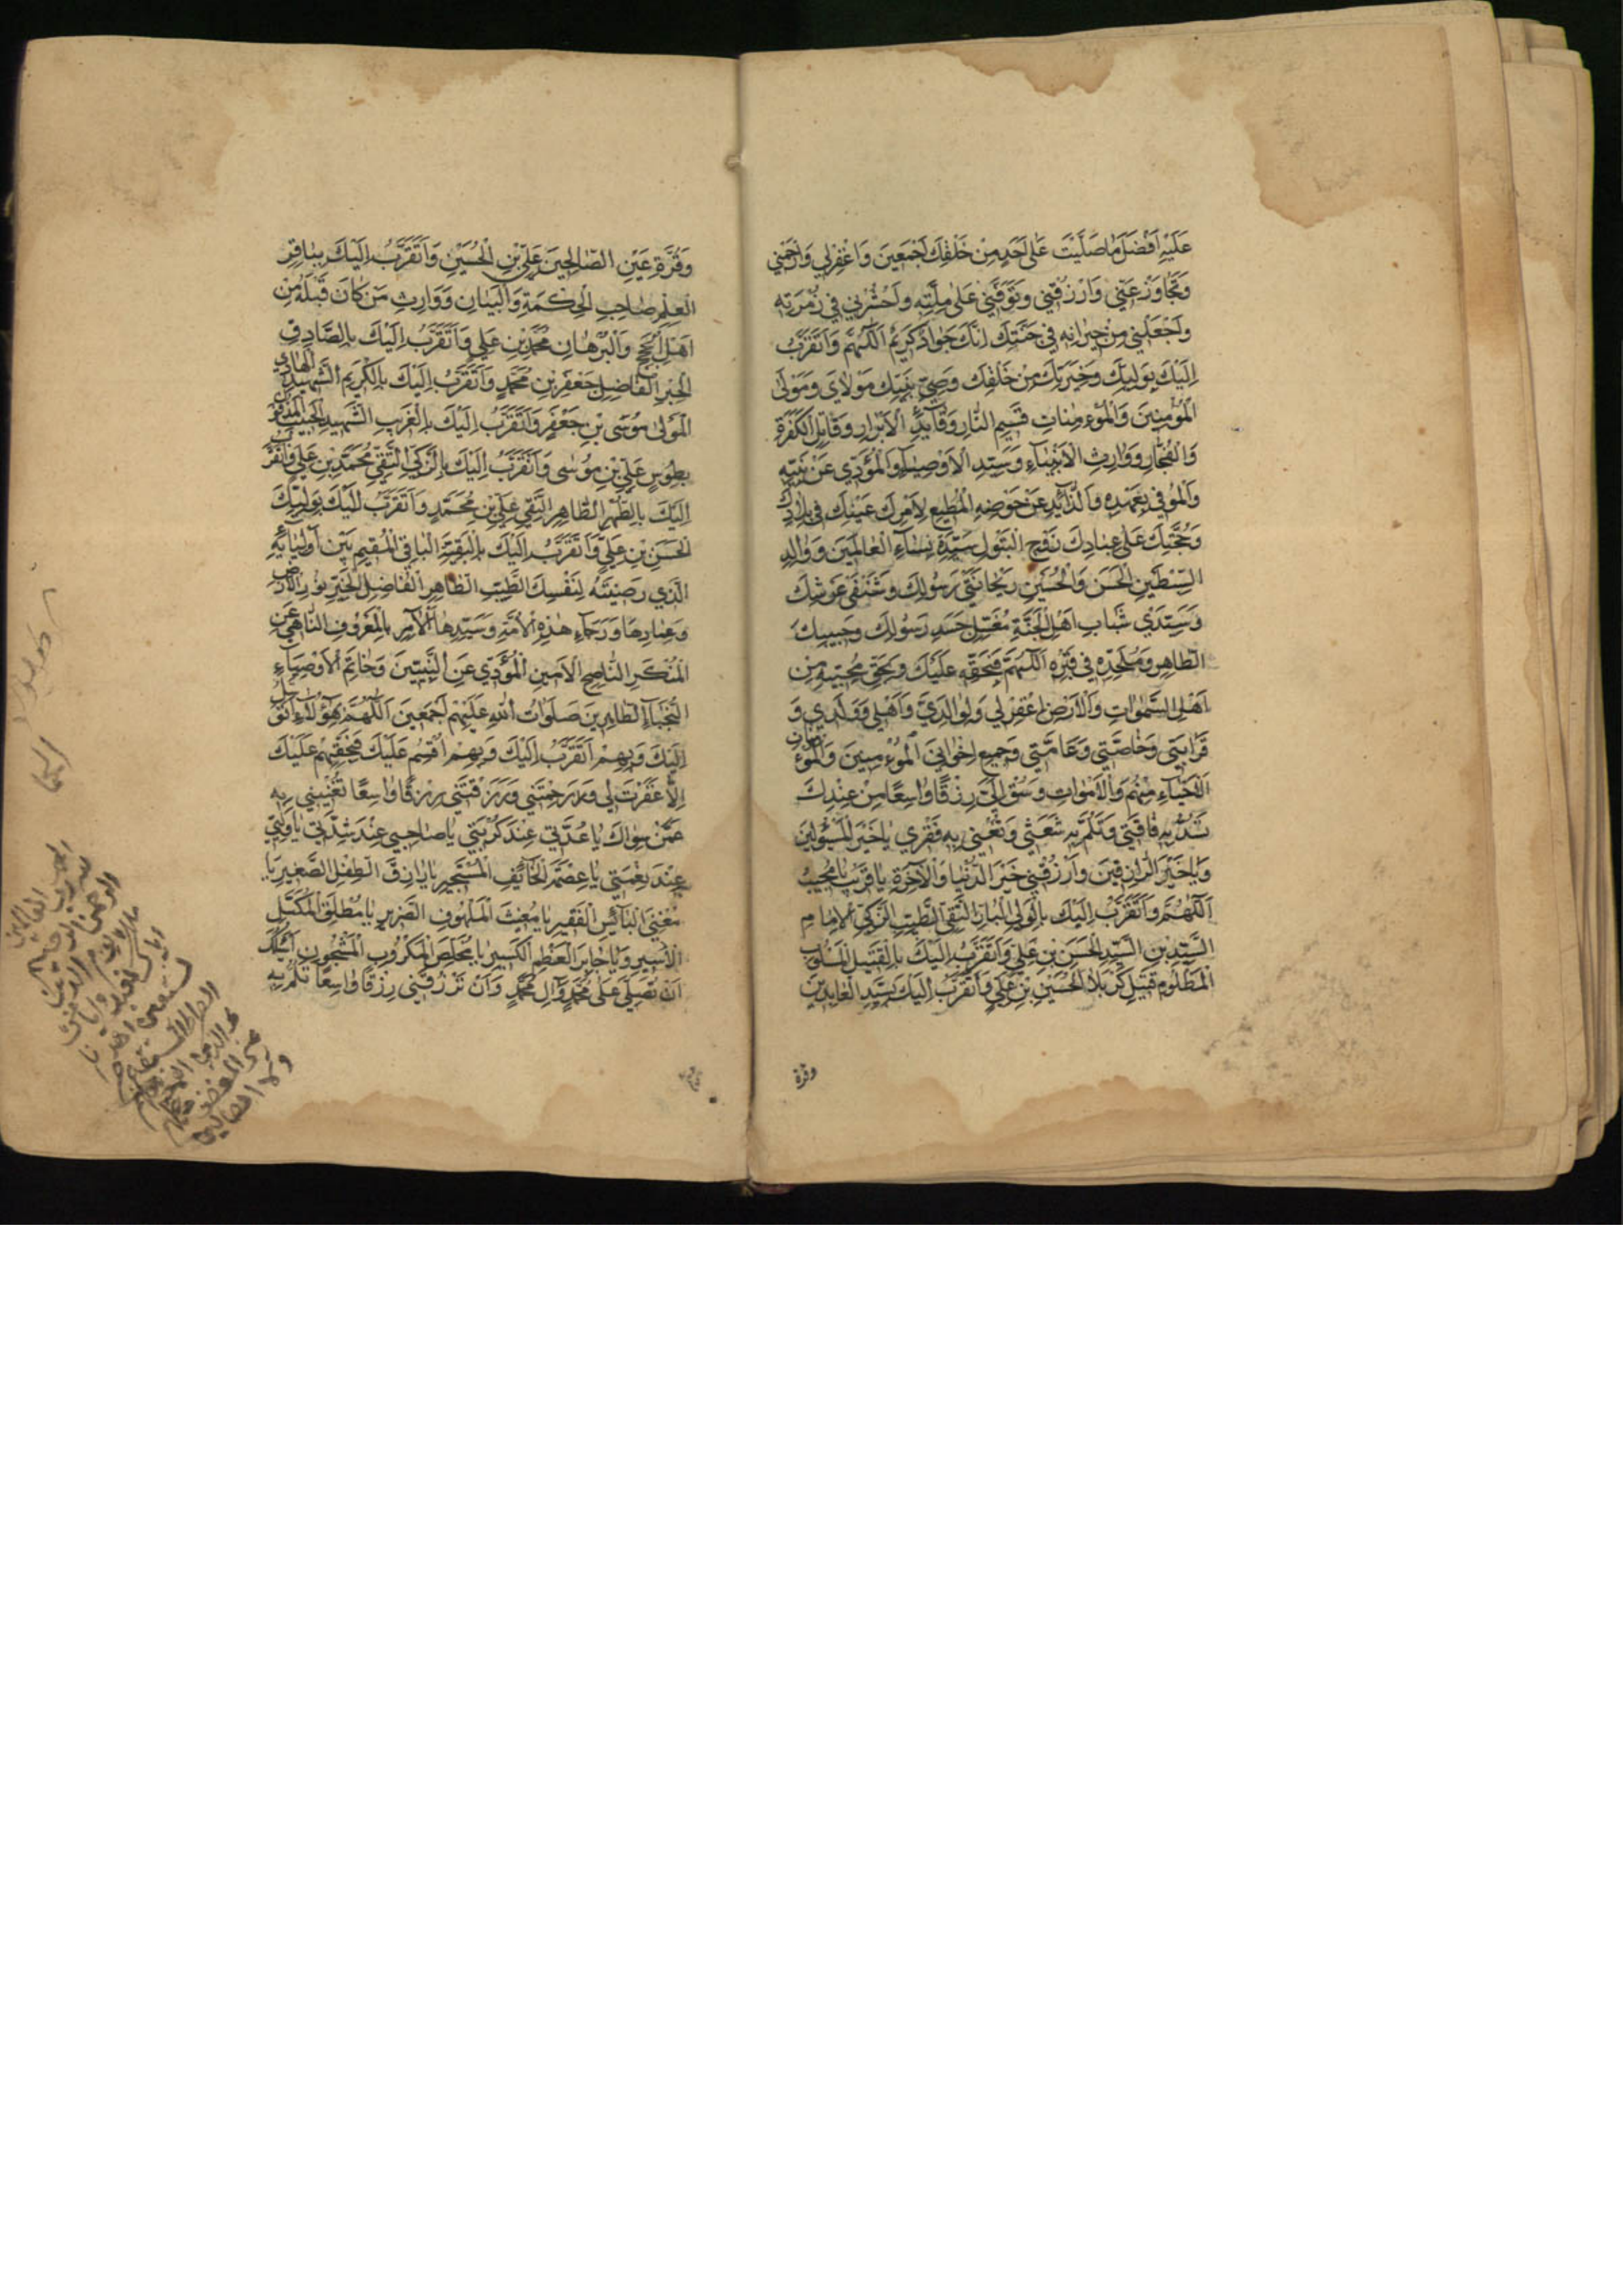 عَلَيْهِ اَفْضَلَ مَا صَلَّيْتَ عَلٰى اَحَدٍ مِنْ خَلْقِكَ اَجْمَعِينَ وَاغْفِرْلِي وَارْحَمْنِي
وَتَجَاوَزْ عَنِّي وَارْزُقْنِي وَتَوَفَّنِي عَلٰى مِلَّتِهِ وَاحْشُرْنِي فِي زُمْرَتِهِ
وَاجْعَلْنِي مِنْ جِيرَانِهِ فِي جَنَّتِكَ اِنَّكَ جَوَادٌ كَرِيمٌ اَللّٰهُمَّ وَاَتَقَرَّبُ
اِلَيْكَ بِوَلِيِّكَ وَخِيَرَتِكَ مِنْ خَلْقِكَ وَصِيِّ نَبِيِّكَ مَوْلَايَ وَمَوْلَى
الْمُؤْمِنِينَ وَالْمُؤْمِنَاتِ قَسِيمِ النَّارِ وَقَائِدِ الْاَبْرَارِ وَقَاتِلِ الْكَفَرَةِ
وَالْفُجَّارِ وَوَارِثِ الْاَنْبِيَاءِ وَسَيِّدِ الْاَوْصِيَاءِ وَالْمُؤَدِّي عَنْ نَبِيِّهِ
وَالْمُوفِي بِعَهْدِهِ وَالذَّائِدِ عَنْ حَوْضِهِ الْمُطِيعِ لِاَمْرِكَ عَيْنِكَ فِي بِلَادِكَ
وَحُجَّتِكَ عَلٰى عِبَادِكَ زَوْجِ الْبَتُولِ سَيِّدَةِ نِسَاءِ الْعَالَمِينَ وَوَالِدِ
السِّبْطَيْنِ الْحَسَنِ وَالْحُسَيْنِ رَيْحَانَتَيْ رَسُولِكَ وَشَنْفَيْ عَرْشِكَ
وَسَيِّدَيْ شَبَابِ اَهْلِ الْجَنَّةِ مُغَسِّلِ جَسَدِ رَسُولِكَ وَحَبِيبِكَ
الطَّاهِرِ وَمُلْحِدِهِ فِي قَبْرِهِ اَللّٰهُمَّ فَبِحَقِّهِ عَلَيْكَ وَبِحَقِّ مُحِبِّيهِ مِنْ
اَهْلِ السَّمٰوَاتِ وَالْاَرْضِ اغْفِرْلِي وَلِوَالِدَيَّ وَاَهْلِي وَوَلَدِي وَ
قَرَابَتِي وَخَاصَّتِي وَعَامَّتِي وَجَمِيعِ اِخْوَانِيَ الْمُؤْمِنِينَ وَالْمُؤْمِنَاتِ
الْاَحْيَاءِ مِنْهُمْ وَالْاَمْوَاتِ وَسُقْ اِلَيَّ رِزْقًا وَاسِعًا مِنْ عِنْدِكَ
تَسُدُّ بِهِ فَاقَتِي وَتَلُمُّ بِهِ شَعَثِي وَتُغْنِي بِهِ فَقْرِي يَا خَيْرَ الْمَسْئُولِينَ
وَيَا خَيْرَ الرَّازِقِينَ وَارْزُقْنِي خَيْرَ الدُّنْيَا وَالْآخِرَةِ يَا قَرِيبُ يَا مُجِيبُ
اَللّٰهُمَّ وَاَتَقَرَّبُ اِلَيْكَ بِالْوَلِيِّ الْبَارِّ التَّقِيِّ الطَّيِّبِ الزَّكِيِّ الْاِمَامِ
السَّيِّدِ بْنِ السَّيِّدِ الْحَسَنِ بْنِ عَلِيٍّ وَاَتَقَرَّبُ اِلَيْكَ بِالْقَتِيلِ الْمَسْلُوبِ
الْمَظْلُومِ قَتِيلِ كَرْبَلَا الْحُسَيْنِ بْنِ عَلِيٍّ وَاَتَقَرَّبُ اِلَيْكَ بِسَيِّدِ الْعَابِدِينَ
وقرة
وَقُرَّةِ عَيْنِ الصَّالِحِينَ عَلِيِّ بْنِ الْحُسَيْنِ وَاَتَقَرَّبُ اِلَيْكَ بِبَاقِرِ
الْعِلْمِ صَاحِبِ الْحِكْمَةِ وَالْبَيَانِ وَوَارِثِ مَنْ كَانَ قَبْلَهُ مِنْ
اَهْلِ الْحُجَجِ وَالْبُرْهَانِ مُحَمَّدِ بْنِ عَلِيٍّ وَاَتَقَرَّبُ اِلَيْكَ بِالصَّادِقِ
الْحِبْرِ الْفَاضِلِ جَعْفَرِ بْنِ مُحَمَّدٍ وَاَتَقَرَّبُ اِلَيْكَ بِالْكَرِيمِ الشَّهِيدِ الْهَادِي
الْمَوْلٰى مُوسَى بْنِ جَعْفَرٍ وَاَتَقَرَّبُ اِلَيْكَ بِالْغَرِيبِ الشَّهِيدِ الْحَبِيبِ الْمَدْفُونِ
بِطُوسٍ عَلِيِّ بْنِ مُوسٰى وَاَتَقَرَّبُ اِلَيْكَ بِالزَّكِيِّ التَّقِيِّ مُحَمَّدِ بْنِ عَلِيٍّ وَاَتَقَرَّبُ
اِلَيْكَ بِالطُّهْرِ الطَّاهِرِ النَّقِيِّ عَلِيِّ بْنِ مُحَمَّدٍ وَاَتَقَرَّبُ اِلَيْكَ بِوَلِيِّكَ
الْحَسَنِ بْنِ عَلِيٍّ وَاَتَقَرَّبُ اِلَيْكَ بِالْبَقِيَّةِ الْبَاقِي الْمُقِيمِ بَيْنَ اَوْلِيَائِهِ
الَّذِي رَضِيتَهُ لِنَفْسِكَ الطَّيِّبِ الطَّاهِرِ الْفَاضِلِ الْخَيِّرِ نُورِ الْاَرْضِ
وَعِمَادِهَا وَرَجَاءِ هٰذِهِ الْاُمَّةِ وَسَيِّدِهَا الْآمِرِ بِالْمَعْرُوفِ النَّاهِي عَنِ
الْمُنْكَرِ النَّاصِحِ الْاَمِينِ الْمُؤَدِّي عَنِ النَّبِيِّينَ وَخَاتَمِ الْاَوْصِيَاءِ
النُّجَبَاءِ الطَّاهِرِينَ صَلَوَاتُ اللّٰهِ عَلَيْهِمْ اَجْمَعِينَ اَللّٰهُمَّ بِهٰؤُلَاءِ اَتَوَسَّلُ
اِلَيْكَ وَبِهِمْ اَتَقَرَّبُ اِلَيْكَ وَبِهِمْ اُقْسِمُ عَلَيْكَ فَبِحَقِّهِمْ عَلَيْكَ
اِلَّا غَفَرْتَ لِي وَرَحِمْتَنِي وَرَزَقْتَنِي رِزْقًا وَاسِعًا تُغْنِينِي بِهِ
عَمَّنْ سِوَاكَ يَا عُدَّتِي عِنْدَ كُرْبَتِي يَا صَاحِبِي عِنْدَ شِدَّتِي يَا وَلِيِّي
عِنْدَ نِعْمَتِي يَا عِصْمَةَ الْخَائِفِ الْمُسْتَجِيرِ يَا رَازِقَ الطِّفْلِ الصَّغِيرِ يَا
مُغْنِيَ الْبَائِسِ الْفَقِيرِ يَا مُغِيثَ الْمَلْهُوفِ الضَّرِيرِ يَا مُطْلِقَ الْمُكَبَّلِ
الْاَسِيرِ وَيَا جَابِرَ الْعَظْمِ الْكَسِيرِ يَا مُخَلِّصَ الْمَكْرُوبِ الْمَسْجُونِ اَسْئَلُكَ
اَنْ تُصَلِّيَ عَلٰى مُحَمَّدٍ وَآلِ مُحَمَّدٍ وَاَنْ تَرْزُقَنِي رِزْقًا وَاسِعًا تَلُمُّ بِهِ
الحمد
لله رب العالمين
الرحمن الرحيم
مالك يوم الدين
اياك نعبد واياك
نستعين اهدنا
الصراط المستقيم
صراط الذين انعمت عليهم
غير المغضوب عليهم
ولا الضالين